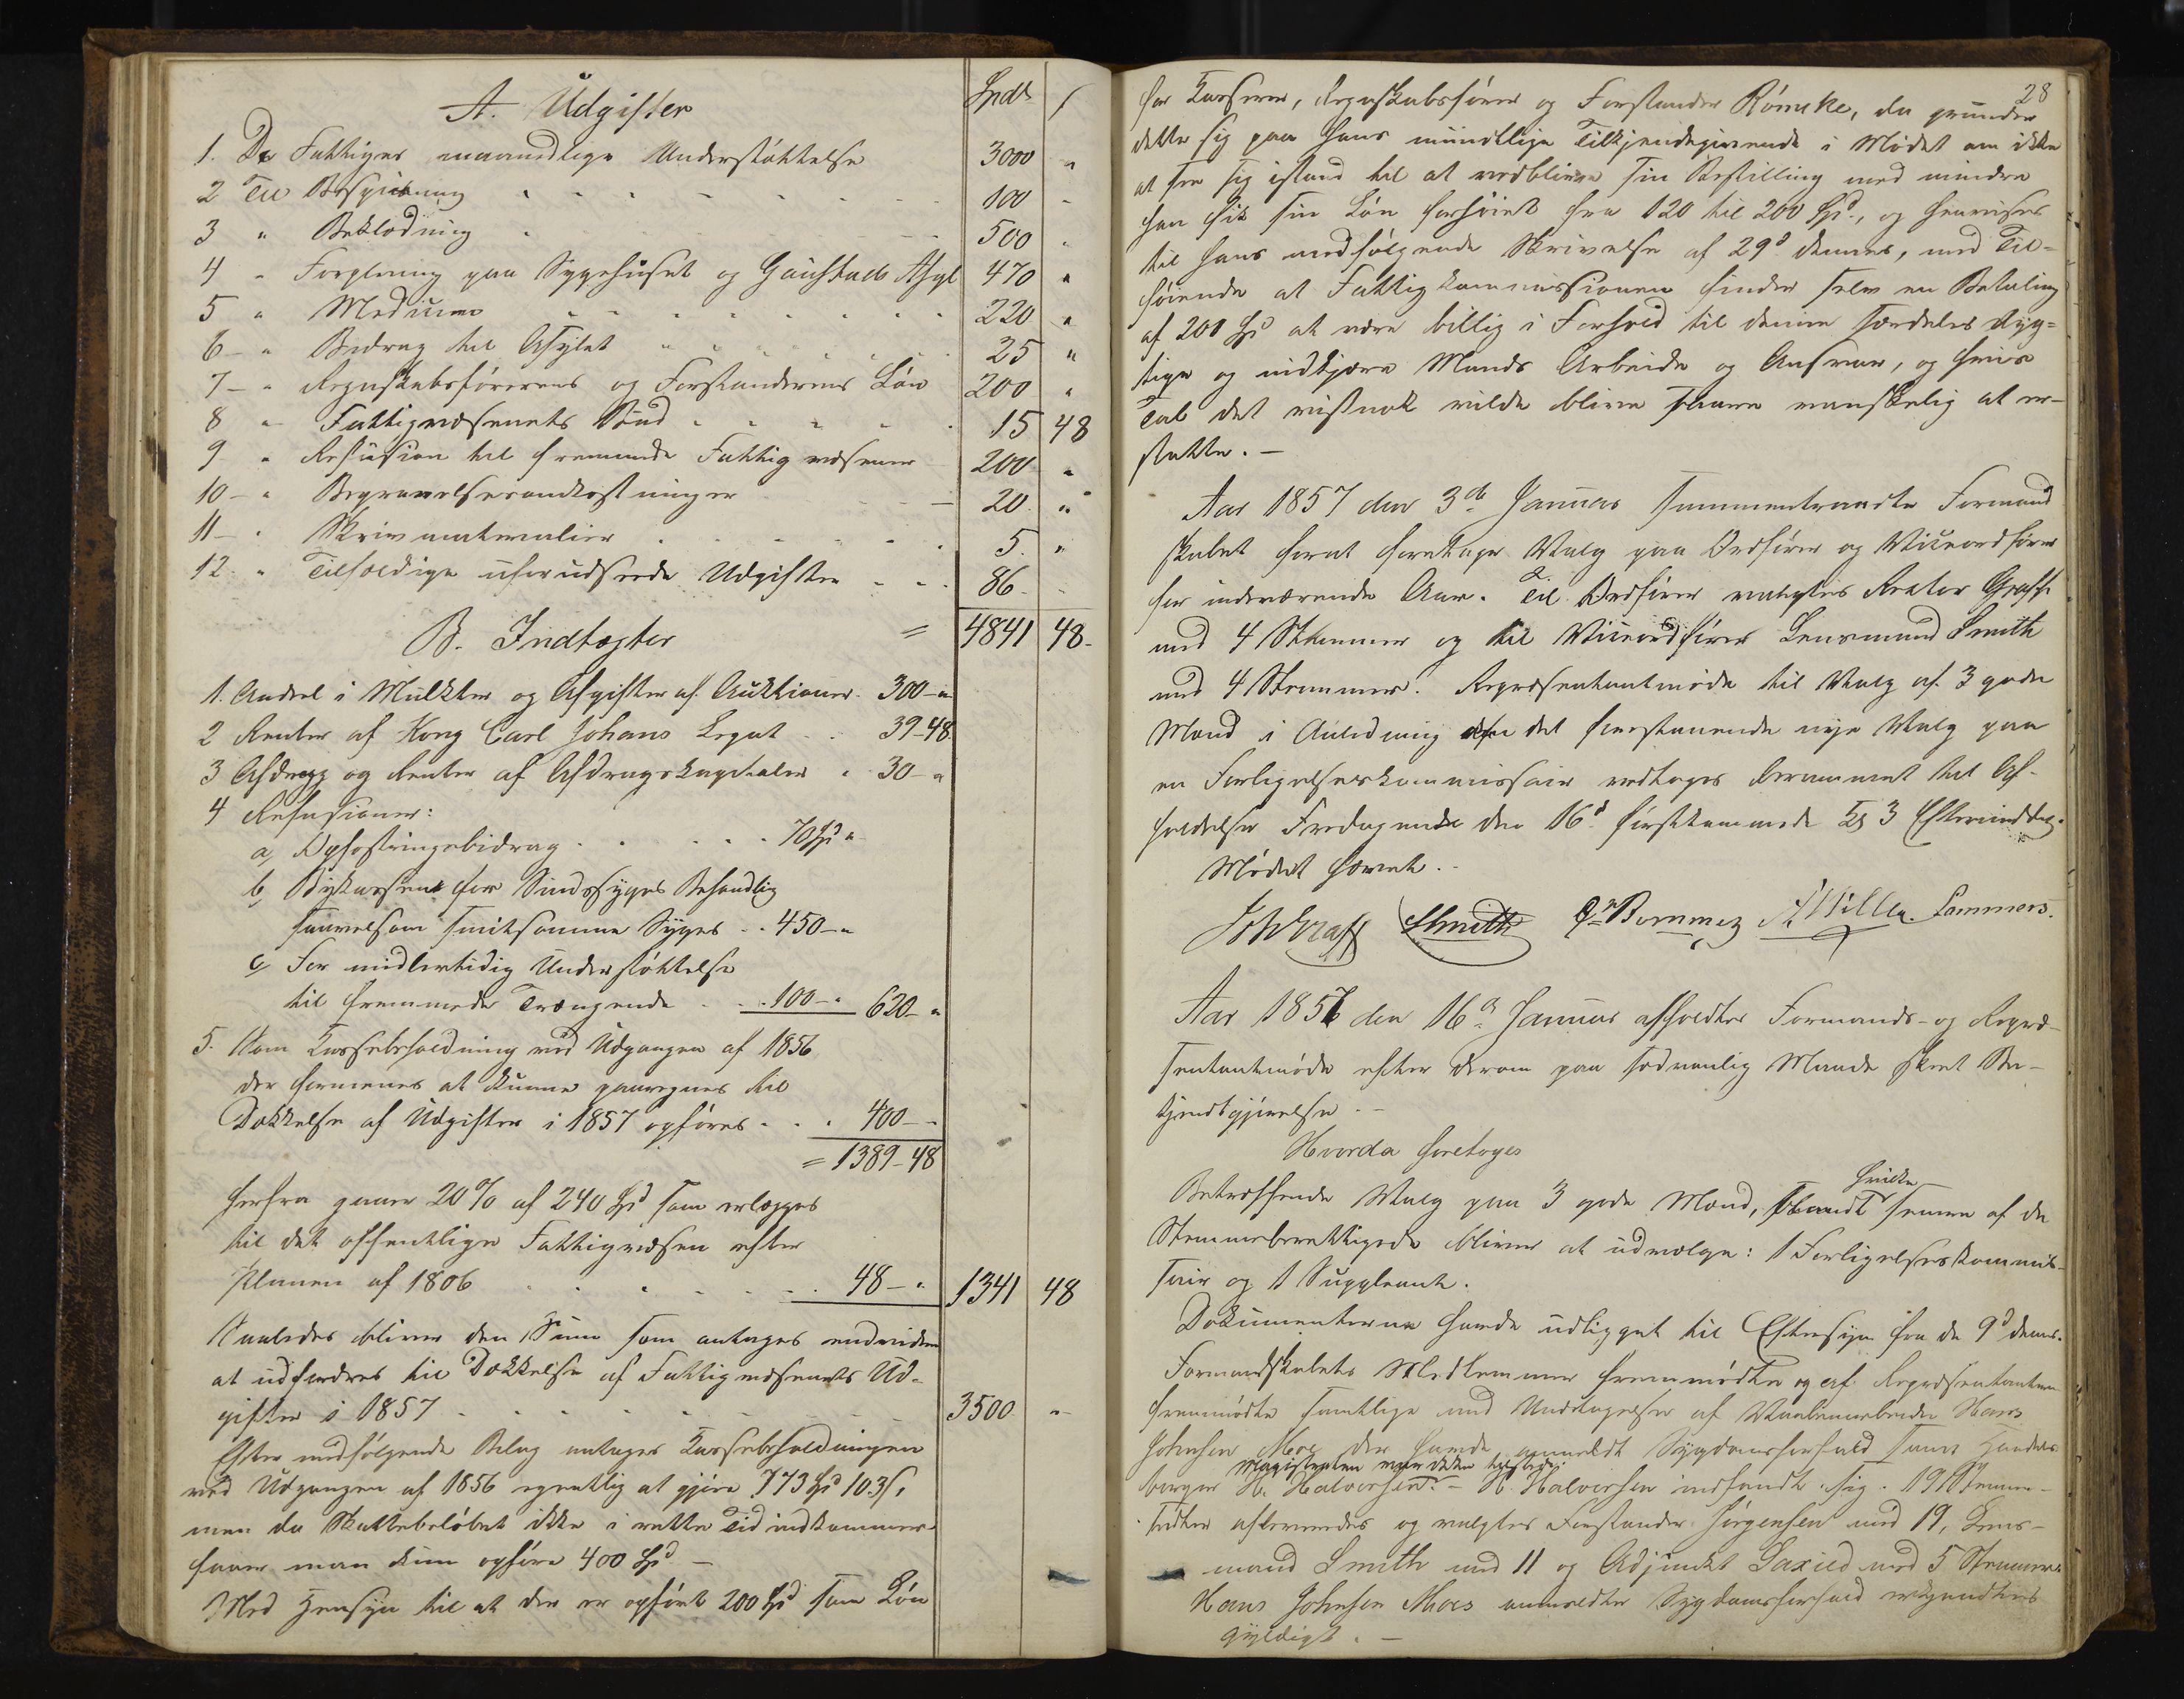 A. Udgifter Spdl. ß
1. De Fattiges maanedlige Understøttelse 3000 "
2 Til Bespiisning 100 -
3 " Beklædning 500 "
4 " Forplening paa Sygehuset og Gaustads Asyl 470 "
5 " Medicine 220 "
6 - " Bidrag til Asylet 25 "
7 - " Regnskabsførerens og Forstanderens Løn 200 "
8 " Fattigvæsenets Bud 15 48
9 " Refusion til fremmede Fattigvæsener 200 "
10 - " Begravelsesomkostninger 20 "
11 - " Skrivmaterialier 5. "
12. " Tilfældige uforudseede Udgifter 86 -
= 4841 48
B. Indtægter
1. Andeel i Mulkter og Afgifter af Auktioner. 300 - "
2 Renter af Kong Carl Johans Legat 39 - 48
3 Afdrag og Renter af Afdragskapitaler 30 - "
4 Refusioner:
a, Opfostringsbidrag 70 Spd "
b, Bykassen for Sindssyges Behandlig
saavelsom smitsomme Syges 450 - "
c, For midlertidig Understøttelse
til fremmede Trængende 100 - " 620 - "
5. Som Kassebeholdning ved Udgangen af 1856
der formenes at kunne paaregnes til
Dækkelse af Udgifter i 1857 opføres 400 - -
= 1389 - 48
herfra gaaer 20% af 240 Spd som erlægges
til det offentlige Fattigvæsen efter
Planen af 1806 48 - " 1341 48
Saaledes bliver den Sum som antages endvidere
at udfordres til Dækkelse af Fattigvæsenets Ud-
gifter i 1857 3500 "
Efter medfølgende Bilag antages Kassebeholdningen
ved Udgangen af 1856 egentlig at gjøre 773 Spd 103 ß,
men da Skattebeløbet ikke i rette Tid indkommer
faaer man kun opføre 400 Spd -
Med Hensyn til at der er opført 200 Spd som Løn
28
for Kasserer, Regnskabsfører og Forstander Römcke, da grunder
dette sig paa hans mundtlige Tilkjendegivende i Mødet om ikke
at see sig istand til at vedblive sin Bestilling med mindre
han fik sin Løn forhøiet fra 120 til 200 Spd., og henvises
til hans medfølgende Skrivelse af 29d dennes, med Til-
føiende at Fattigkommissionen finder selv en Betaling
af 200 Spd at være billig i Forhold til denne særdeles dyg-
tige og nidkjære Mands Arbeide og Ansvar, og hvis
Tab det vistnok vilde blive saare vanskelig at er-
statte. -
Aar 1857 den 3de Januar sammentraadte Formand
skabet forat foretage Valg paa Ordfører og Viceordfører
for indeværende Aar. Til Ordfører valgtes Rector Graff
med 4 Stemmer og til Viceordfører Lensmand Smith
med 4 Stemmer. Repræsentantmøde til Valg af 3 gode
Mænd i Anledning det forestaaende nye Valg paa
en Forligelseskommissair vedtoges berammet til Af-
holdelse Fredagen den 16d førstkommende Kl 3 Eftermiddag.
Mødet hævet. -
Graff Smith Bommez Wille. Lammers.
Aar 1857 den 16d Januar afholdtes Formands- og Repræ-
sentantmøde efter derom paa sædvanlig Maade skeet Be-
kjendtgjørelse. -
Hvorda foretoges
Betræffende Valg paa 3 gode Mænd, blandt hvilke senere af de
Stemmeberettigede bliver at udvælge: 1 Forligelseskommis-
sair og 1 Suppleant.
Dokumenterne havde udligget til Eftersyn fra de 9d dennes.
Formandskabets Medlemmer fremmødte og af Repræsentanterne
fremmødte samtlige med Undtagelse af Hans
Johnsen Moe der havde anmeldt Sygdomsforfald samt Handels-
Magistraten var ikke tilstede.
borger H. Halvorsen. - H. Halvorsen indfandt sig. 19 Stemme-
sedler afleveredes og valgtes Forstander Jørgensen med 19, Lens-
mand Smith med 11 og Adjunkt Saxild med 5 Stemmer.
Hans Johnsen Moes anmeldte Sygdomsforfald erkjendtes
gyldigt. -